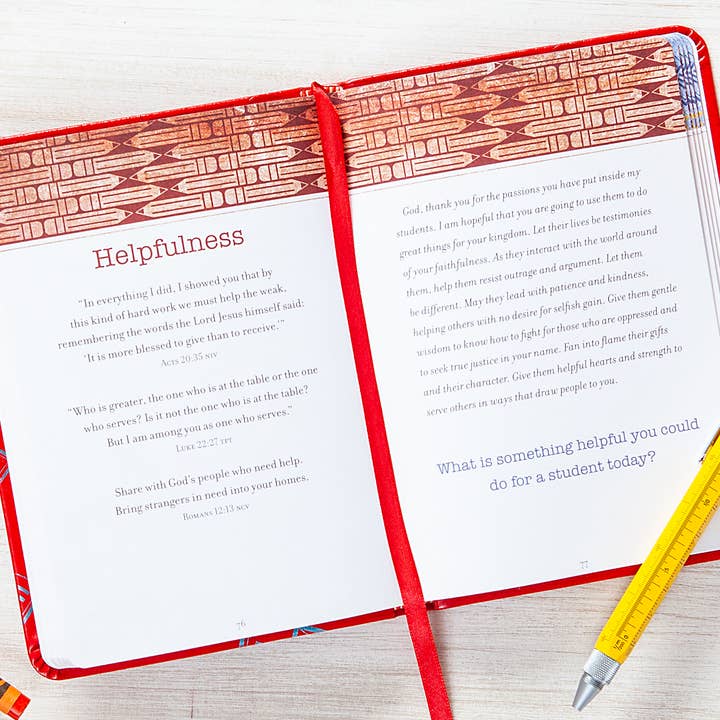 Helpfulness
“In everything I did, I showed you that by
this kind of hard work we must help the weak,
remembering the words the Lord Jesus himself said:
‘It is more blessed to give than to receive.’”
Acts 20:35 NIV
“Who is greater, the one who is at the table or the one
who serves? Is it not the one who is at the table?
But I am among you as one who serves.”
Luke 22:27 TPT
Share with God’s people who need help.
Bring strangers in need into your homes.
Romans 12:13 NCV
76
God, thank you for the passions you have put inside my
students. I am hopeful that you are going to use them to do
great things for your kingdom. Let their lives be testimonies
of your faithfulness. As they interact with the world around
them, help them resist outrage and argument. Let them
be different. May they lead with patience and kindness,
helping others with no desire for selfish gain. Give them gentle
wisdom to know how to fight for those who are oppressed and
to seek true justice in your name. Fan into flame their gifts
and their character. Give them helpful hearts and strength to
serve others in ways that draw people to you.
What is something helpful you could
do for a student today?
77